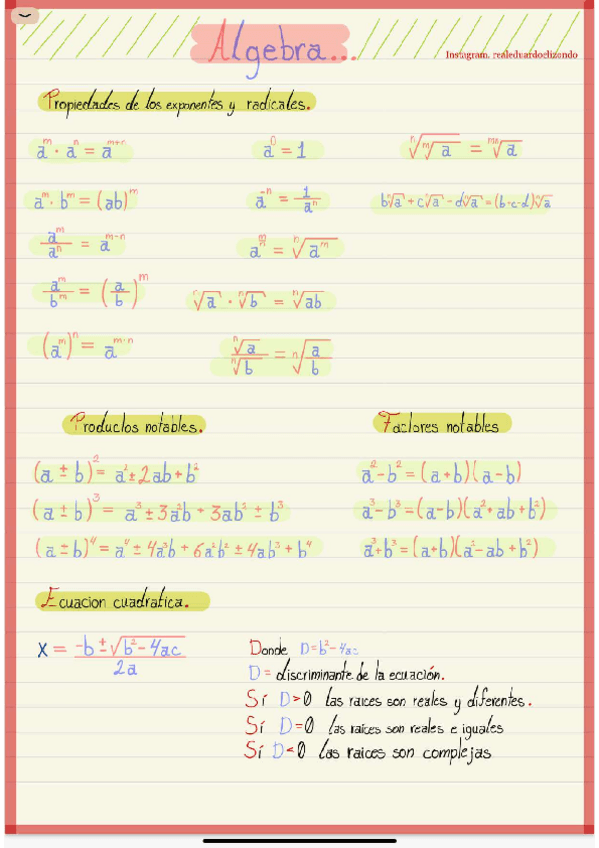 Algebra...
Instagram. realeduardoelizondo
Propiedades de los exponentes y radicales.
a^m · a^n = a^(m+n)
a^0 = 1
ⁿ√(ᵐ√a) = ᵐⁿ√a
a^m · b^m = (ab)^m
a^-n = 1/a^n
bⁿ√a + cⁿ√a - dⁿ√a = (b·c·d)ⁿ√a
a^m/a^n = a^(m-n)
a^(m/n) = ⁿ√(a^m)
a^m/b^m = (a/b)^m
ⁿ√a · ⁿ√b = ⁿ√ab
(a^m)^n = a^(m·n)
ⁿ√a/ⁿ√b = ⁿ√(a/b)
Productos notables.
(a ± b)² = a² ± 2ab + b²
(a ± b)³ = a³ ± 3a²b + 3ab² ± b³
(a ± b)⁴ = a⁴ ± 4a³b + 6a²b² ± 4ab³ + b⁴
Factores notables
a² - b² = (a+b)(a-b)
a³ - b³ = (a-b)(a²+ab+b²)
a³ + b³ = (a+b)(a²-ab+b²)
Ecuacion cuadratica.
x = (-b ± √(b² - 4ac))/2a
Donde D = b² - 4ac
D = discriminante de la ecuación.
Sí D > 0 las raices son reales y diferentes.
Sí D = 0 las raices son reales e iguales
Sí D < 0 las raices son complejas